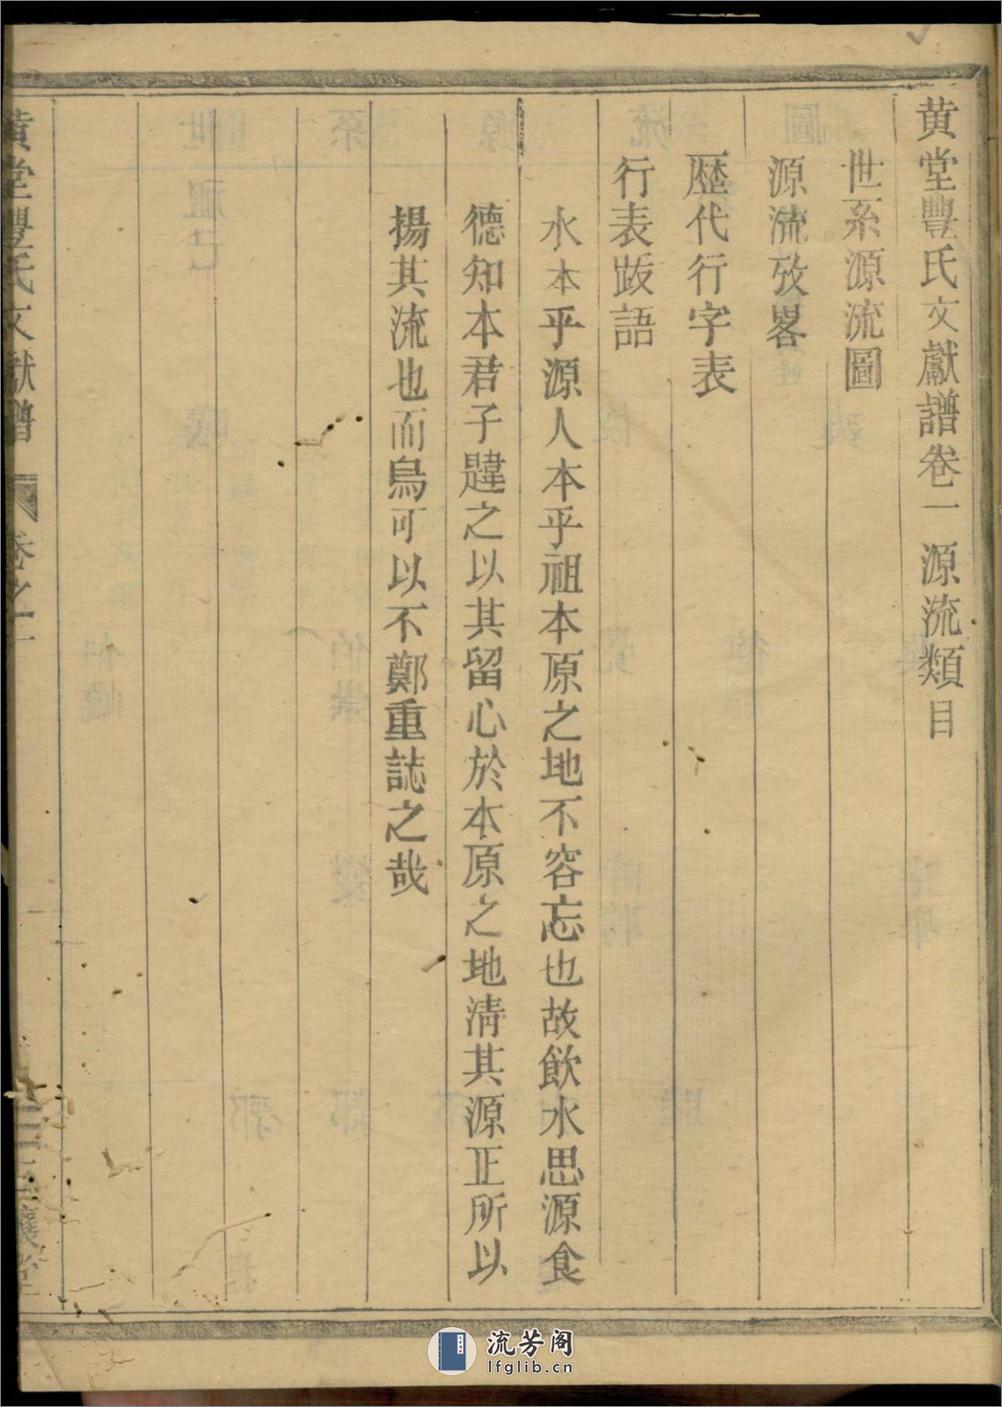 黄堂豐氏文獻譜卷一 源流類目
世系源流圖
源流攷畧
歷代行字表
行表跋語
水本乎源人本乎祖本原之地不容忘也故飲水思源食
德知本君子韙之以其留心於本原之地淸其源正所以
揚其流也而烏可以不鄭重誌之哉
黄堂豐氏文獻譜 卷之一
流芳阁
lfglib.cn